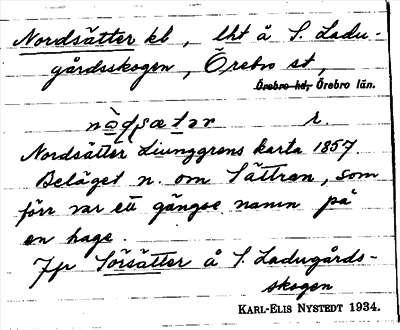 Nordsätter kl, lht å S. Ladu-
gårdsskogen, Örebro st,
Örebro hd, Örebro län.
r.
Nordsätter Ljunggrens karta 1857.
Beläget n. om Sättran, som
förr var ett gängse namn på
en hage
Jfr Sörsätter å S. Ladugårds-
skogen
KARL-ELIS NYSTEDT 1934.